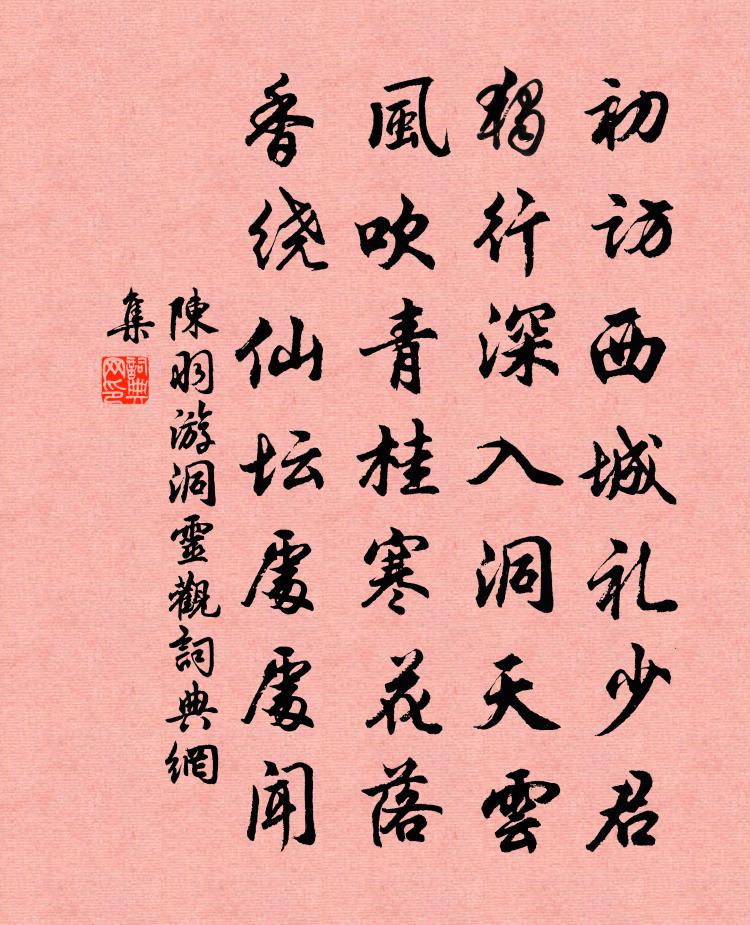 初访西城礼少君
獨行深入洞天雲
風吹青桂寒花落
香绕仙坛處處闻
陳羽游洞靈觀詞典網
集
詞典
网印